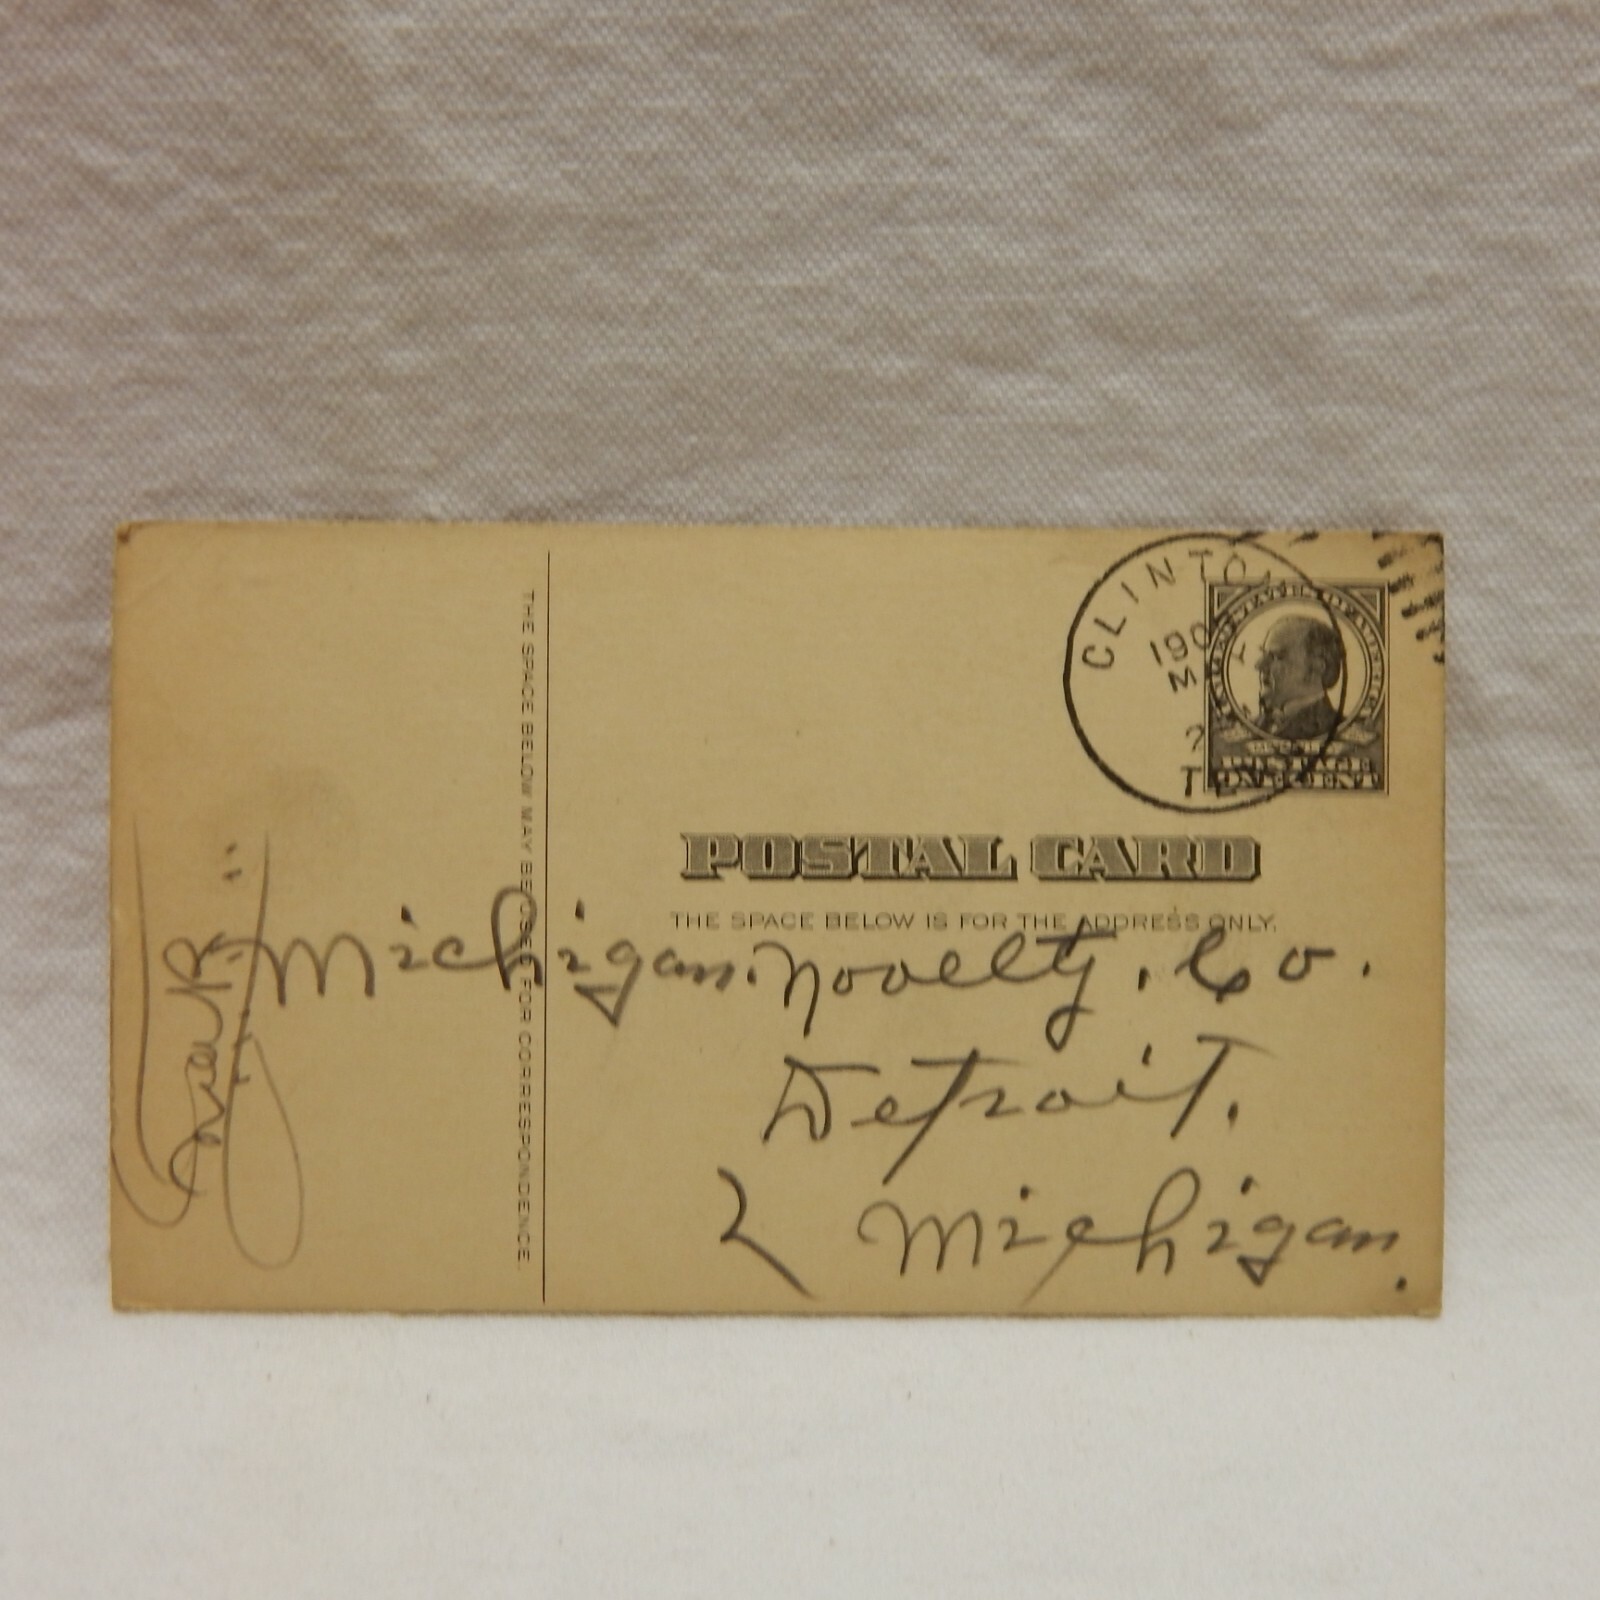 CLINTON
190
M
2
TE
UNITED STATES OF AMERICA
POSTAGE
ONE CENT
POSTAL CARD
THE SPACE BELOW IS FOR THE ADDRESS ONLY.
THE SPACE BELOW MAY BE USED FOR CORRESPONDENCE.
Michigan. Novelty. Co.
Detroit.
Michigan.